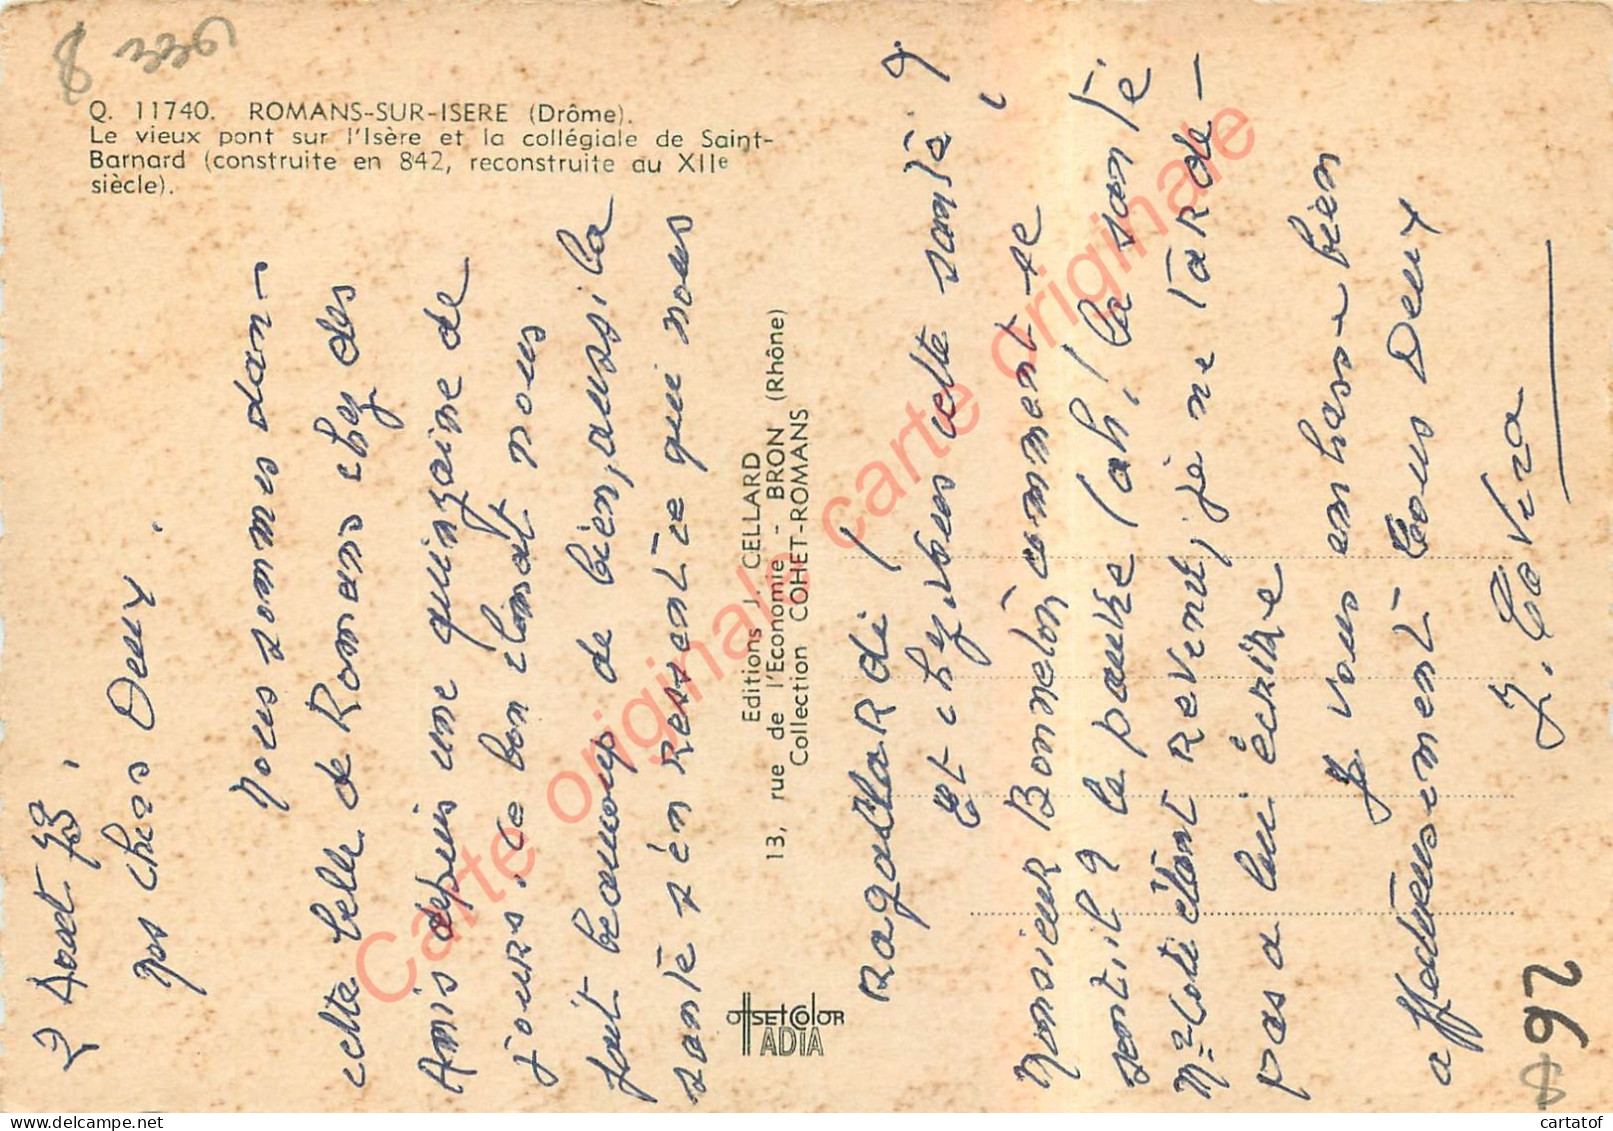 8 336
Q. 11740. ROMANS-SUR-ISERE (Drôme).
Le vieux pont sur l'Isère et la collégiale de Saint-
Barnard (construite en 842, reconstruite au XIIe
siècle).
Aout 73
Nos chers Deux.
Nous sommes dan-
cette belle de Romans chez des
Amis depuis une quinzaine de
jours. ce bon climat nous
fait beaucoup de bien, aussi la
santé s'en ressent ce qui nous
Editions J. CELLARD
13, rue de l'Economie - BRON (Rhône)
Collection COHET-ROMANS
OFFSET COLOR
ADIA
Ragaillardi!
Et chez vous cette santé ?
Monsieur Bonnelon comment se
sent il ? le pauvre (ah! la santé
côté étant revenu, je ne tarde-
pas a lui écrire
Je vous embrasse bien
affectueusement tous Deux
92
8
Carte originale carte originale carte originale
cartatof